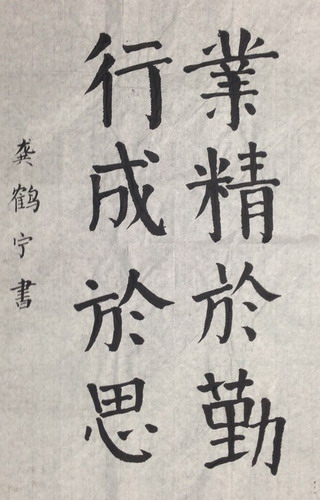 業精於勤
行成於思
龚鹤宁書